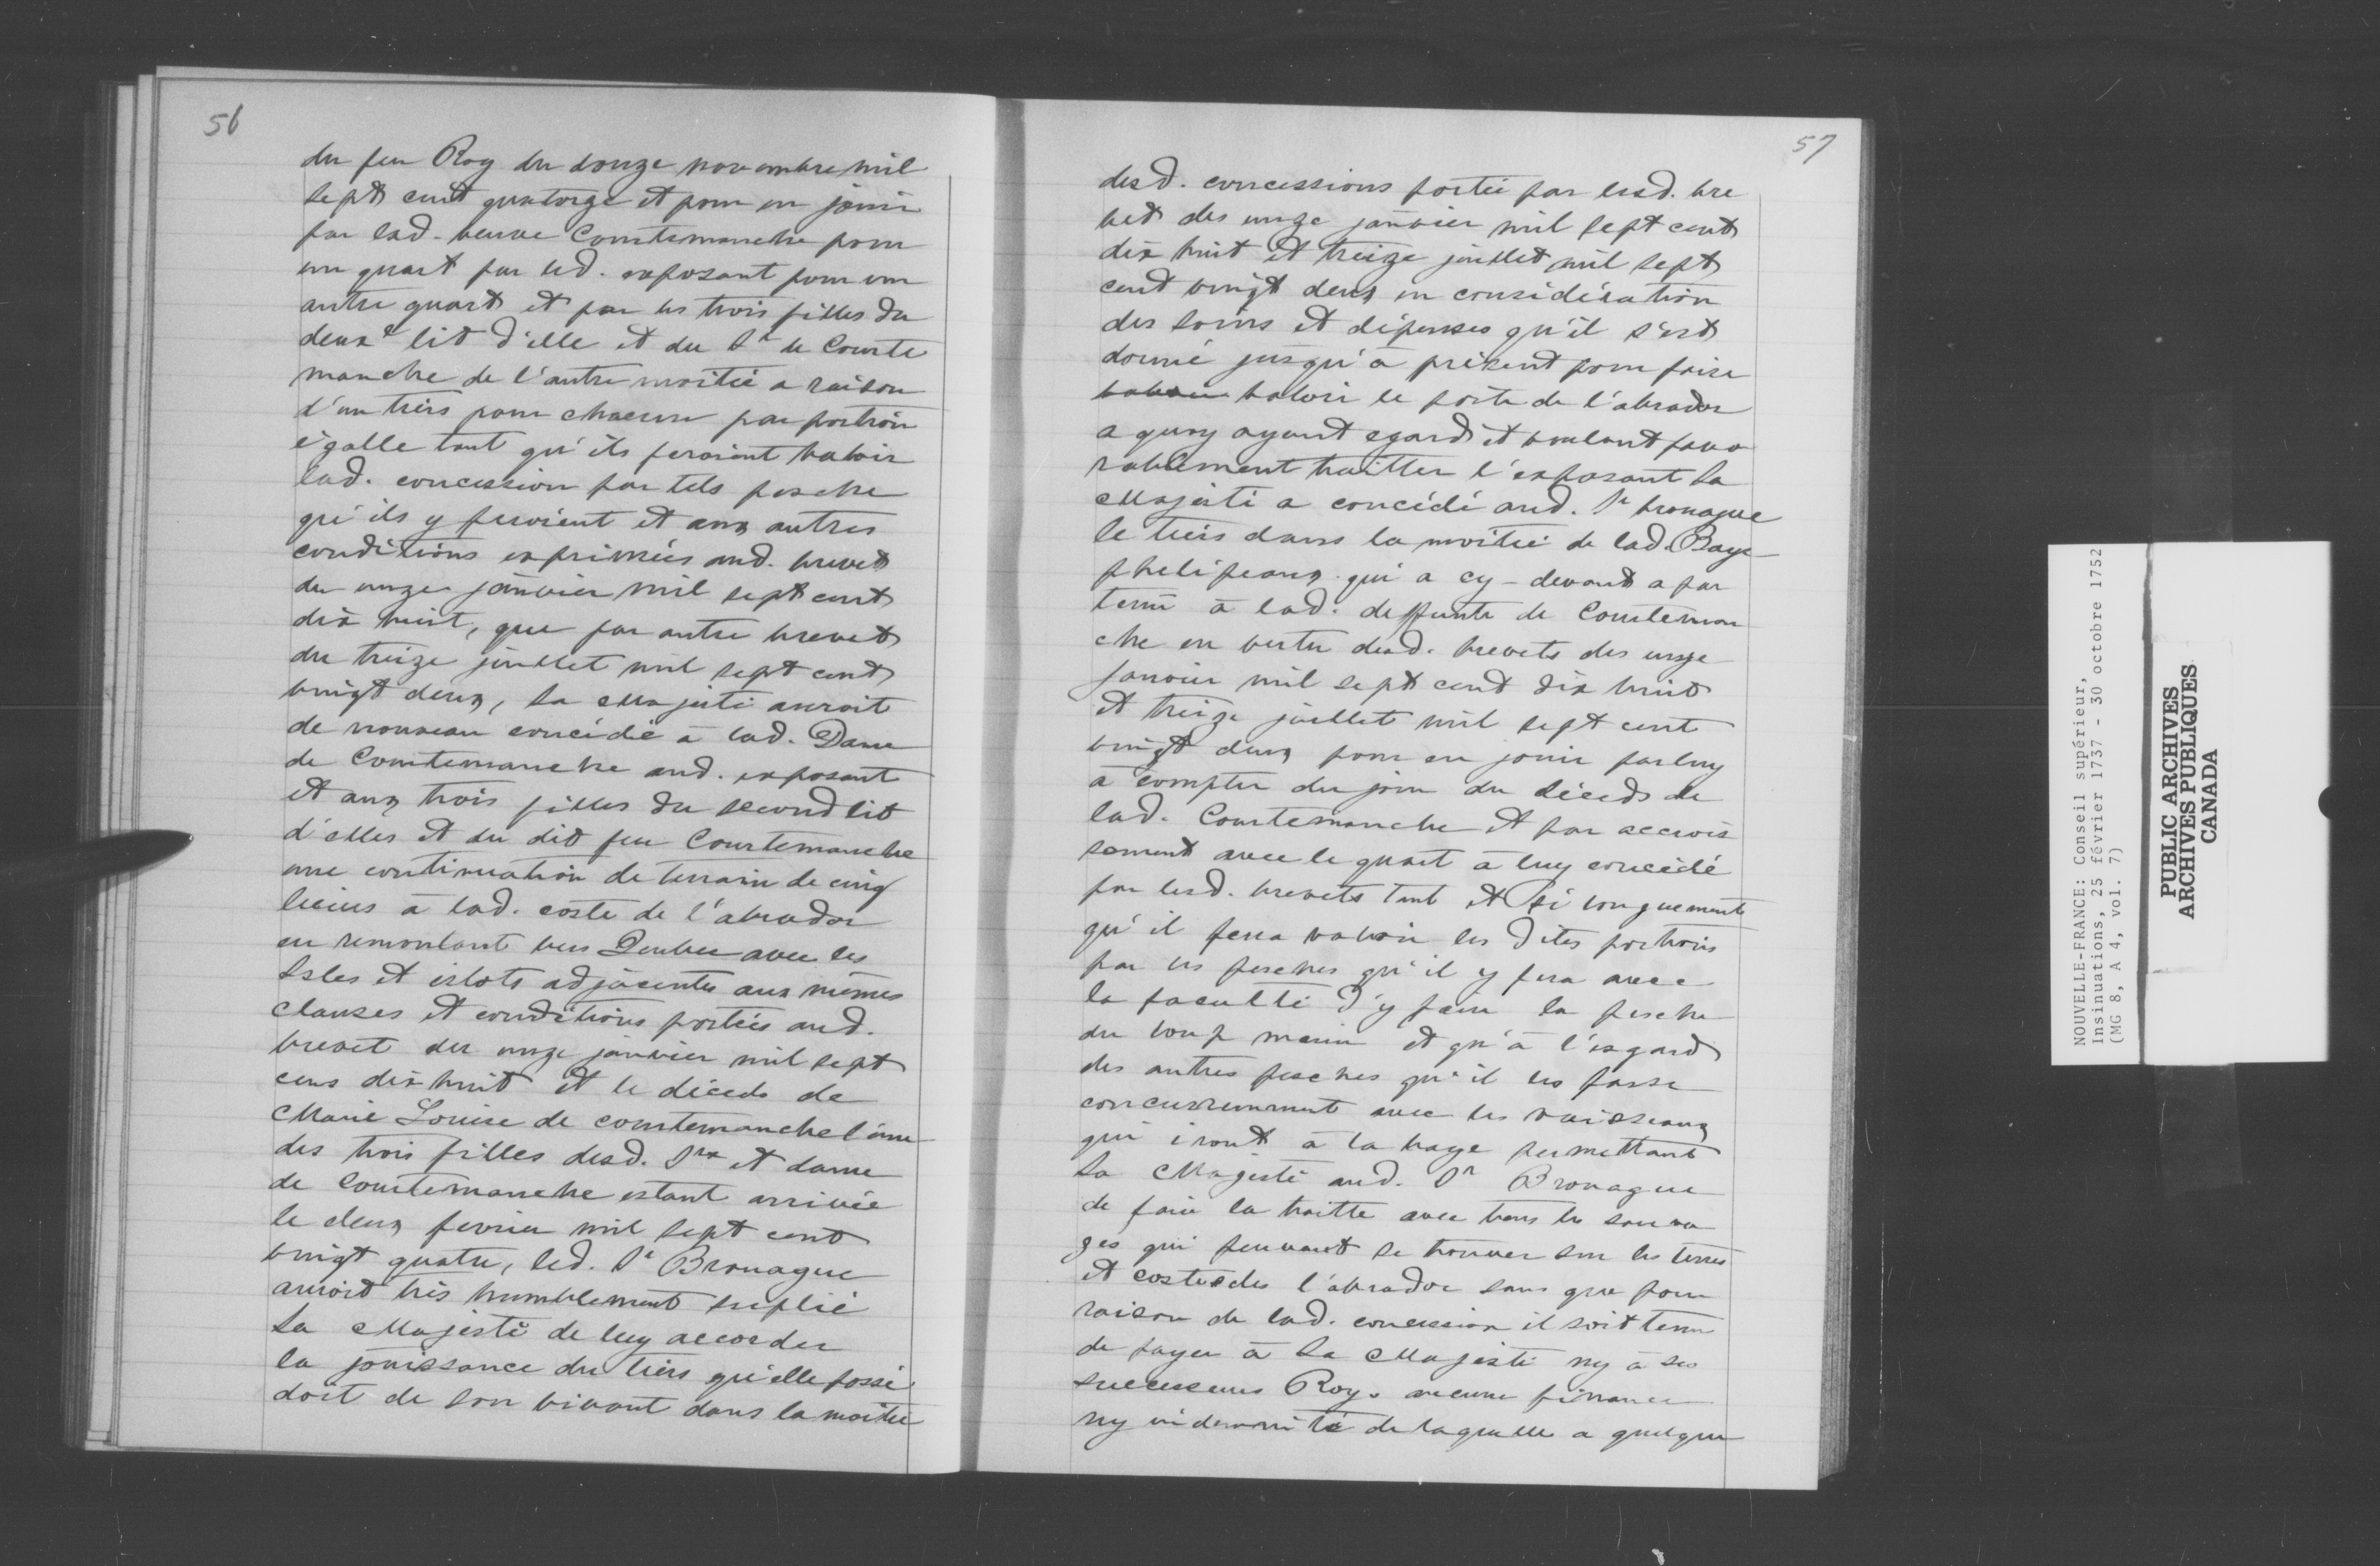 56
du feu Roy du douze novembre mil
sept cent quatorze et pour en jouir
par lad. veuve Courtemanche pour
un quart par led. exposant pour un
autre quart et par les trois filles du
deuxe lit d'elle et du Sr de Courte
manche de l'autre moitié a raison
d'un tiers pour chacune par portion
égalle tant qu'ils feroient valoir
lad. concession par tels pesche
qu'ils y feroient et aux autres
conditions exprimées aud. brevet
du unze janvier mil sept cent
dix huit, que par autre brevet
du treize juillet mil sept cent
vingt deux, sa Majesté auroit
de nouveau concédé à lad. Dame
de Courtemanche aud. exposant
et aux trois filles du second lit
d'elles et du dit feu Courtemanche
une continuation de terrain de cinq
lieues à lad. coste de l'abrador
en remontant vers Quebec avec les
Isles et islots adjacentes aux mêmes
clauses et conditions portées aud.
brevet du unze janvier mil sept
cens dix huit et le déceds de
Marie Louise de courtemanche l'une
des trois filles desd. Srs et dame
de Courtemanche estant arrivée
le deux fevrier mil sept cent
vingt quatre, led. Sr Brouague
auroit très humblement suplié
Sa Majesté de luy accorder
la jouissance du tiers qu'elle possé
doit de son vivant dans la moitié
57
desd. concessions portée par lesd. bre
vet des unze janvier mil sept cent
dix huit et treize juillet mil sept
cent vingt deux en considération
des soins et dépenses qu'il s'est
donné jusqu'à présent pour faire
valoir valoir le poste de l'abrador
a quoy ayant egard et voulant favo
rablement traitter l'exposant Sa
Majesté a concédé aud. Sr brouague
le tiers dans la moitié de lad. Baye
phelipeaux qui a cy-devant a par
tenu à lad. deffunte de Courteman
che en vertu desd. brevets des unze
Janvier mil sept cent dix huit
et treize juillet mil sept cent
vingt deux pour en jouir par luy
à compter du jour du déceds de
lad. Courtemanche et par accrois
sement avec le quart à luy concédé
par lesd. brevets tant et si longuement
qu'il fera valoir les dites portions
par les pesches qu'il y fera avec
la faculté d'y faire la pesche
du loup marin et qu'à l'esgard
des autres pesches qu'il les fasse
concurremment avec les vaisseaux
qui iront à la baye permettant
Sa Majesté aud. Sr Brouague
de faire la traitte avec tous les sauva
ges qui peuvent se trouver sur les terres
et costes de l'abrador sans que pour
raison de lad. concession il soit tenu
de payer à Sa Majesté ny à ses
successeurs Roys aucune finance
ny indemnité de laquelle a quelque
NOUVELLE-FRANCE: Conseil supérieur,
Insinuations, 25 février 1737 - 30 octobre 1752
(MG 8, A 4, vol. 7)
PUBLIC ARCHIVES
ARCHIVES PUBLIQUES
CANADA